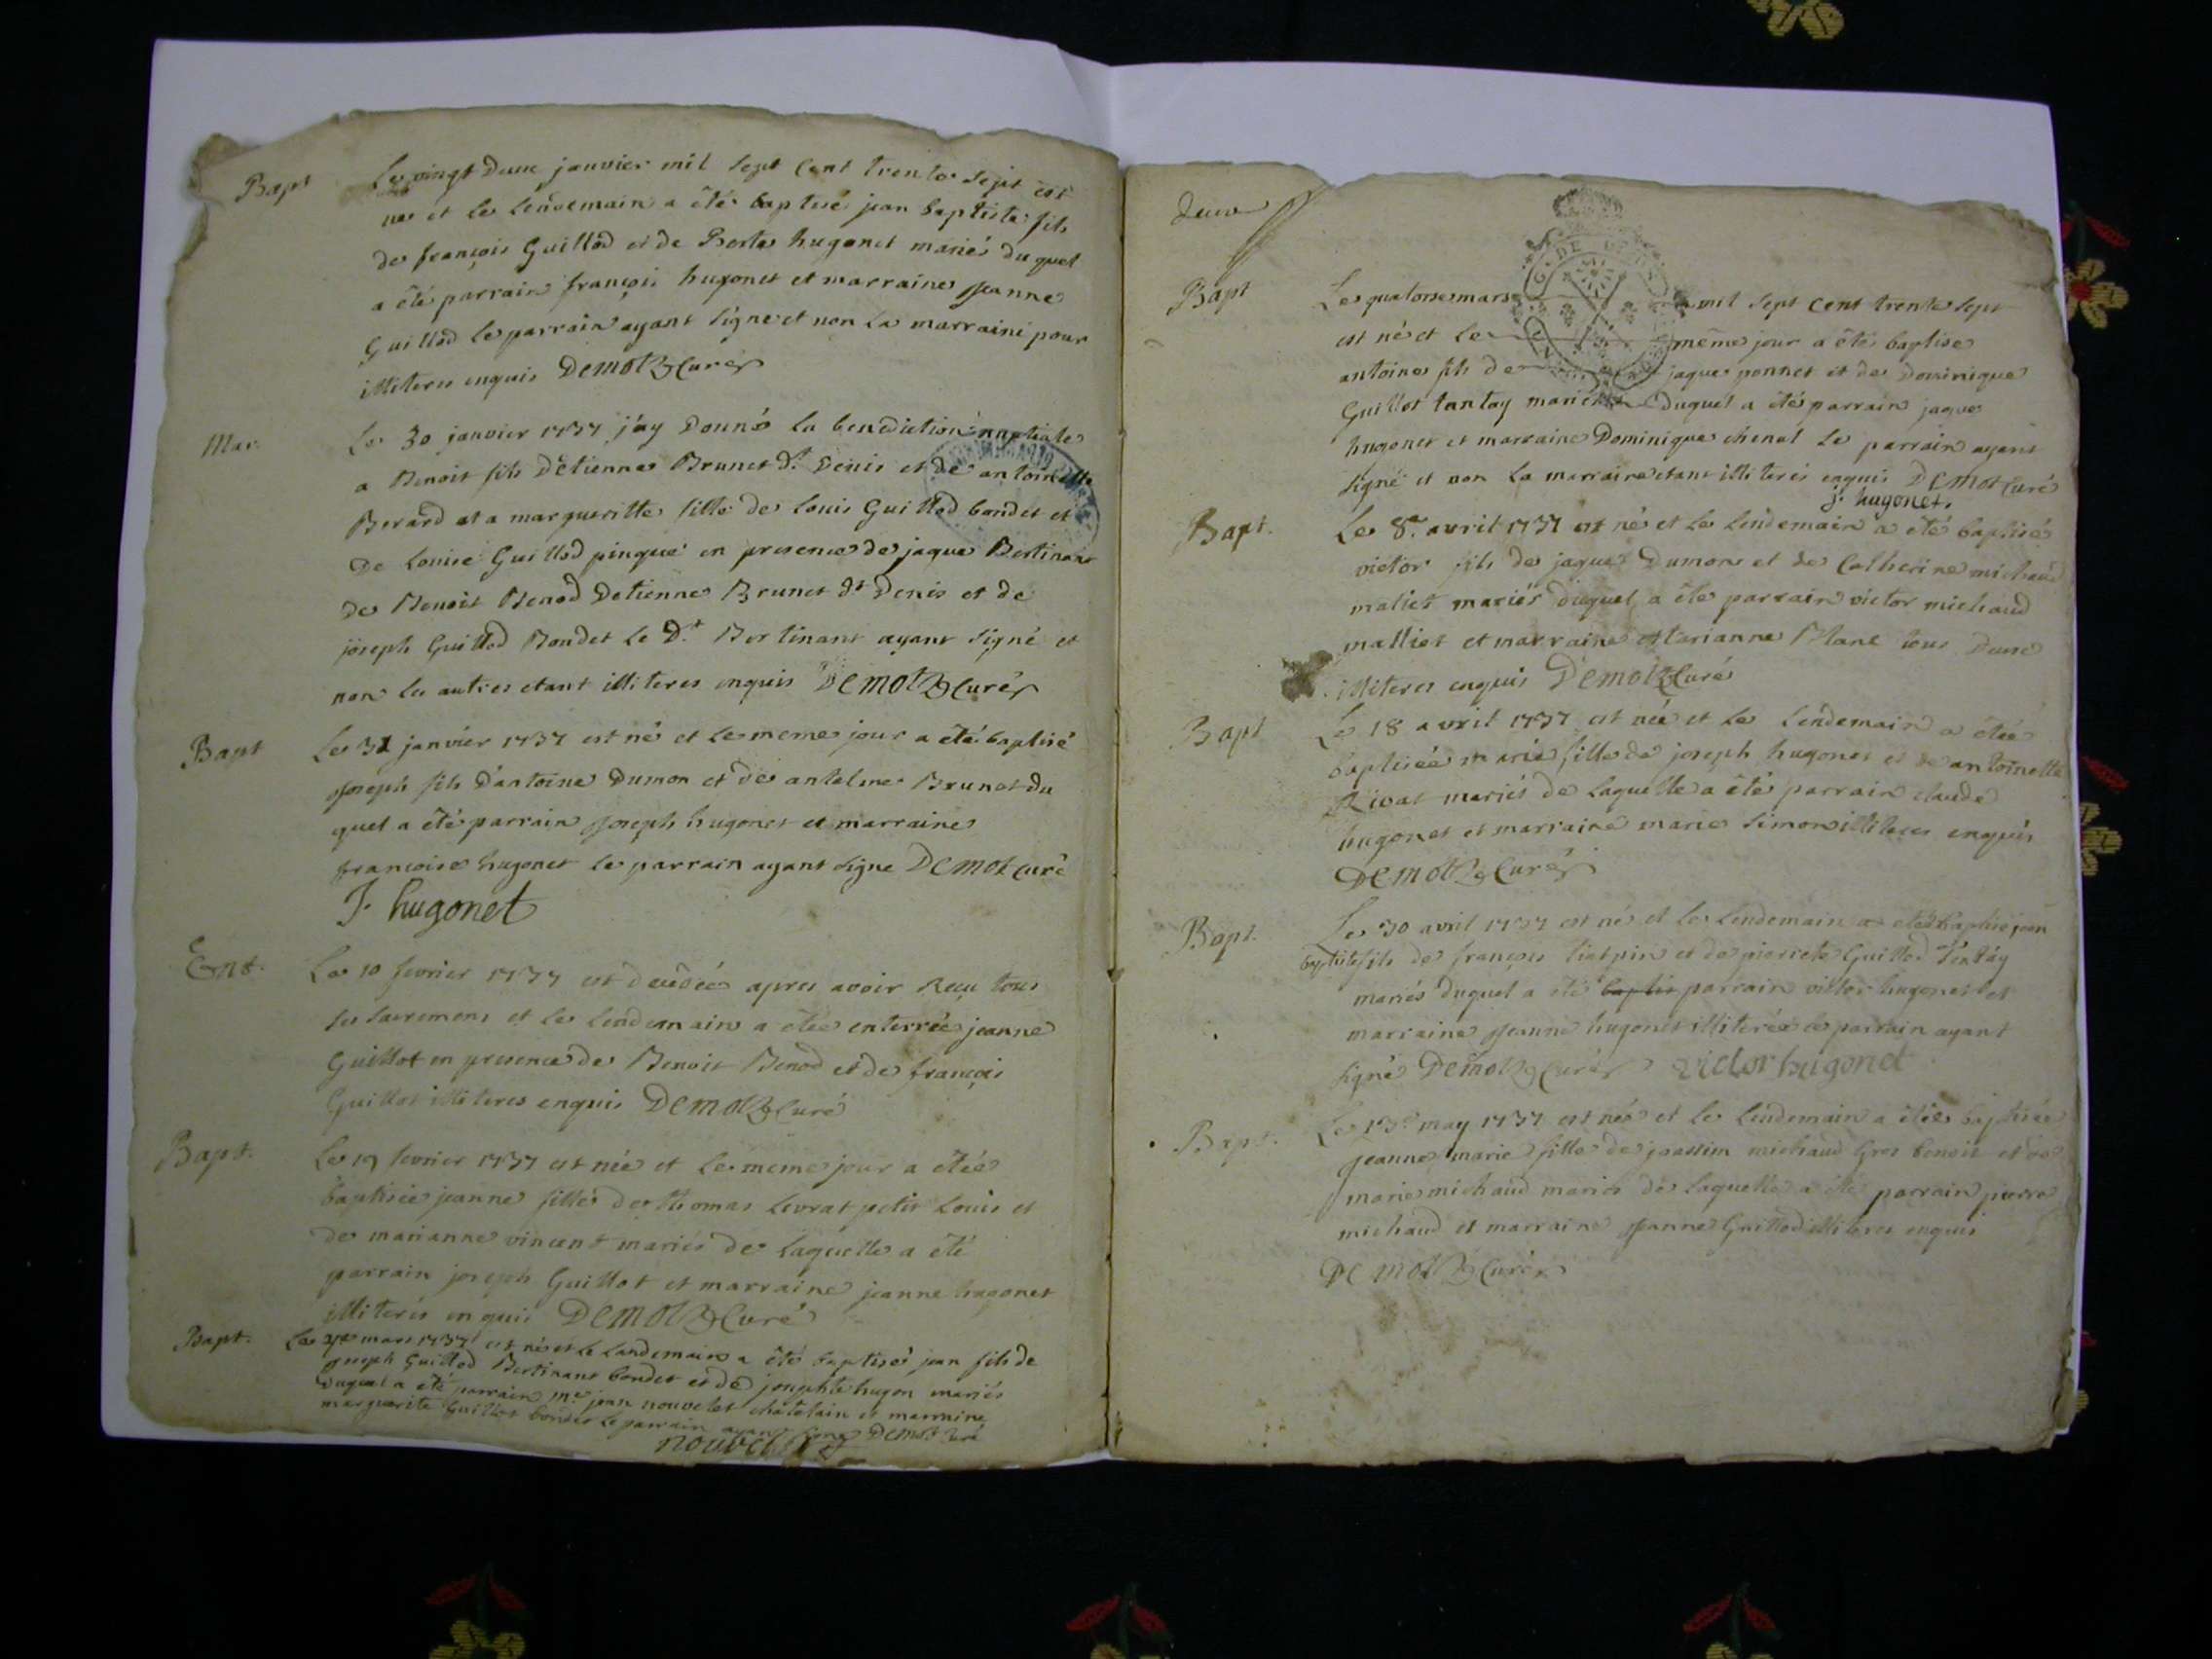 Bapt Le vingt deux janvier mil sept cent trente sept est
né et le lendemain a été baptisé jean baptiste fils
de françois Guillod et de Berte hugonet mariés duquel
a été parrain françois hugonet et marraine Jeanne
Guillod le parrain ayant signé et non la marraine pour
illiteres enquis Demotz Curé
Mar. Le 30 janvier 1737 j'ay donné la benediction nuptiale
a Benoit fils d'etienne Brunet dt Denis et de antoinette
Berard et a margueritte fille de louis Guillod bondet et
de louise Guillod pinque en presence de jaque Bertinant
de Benoit Benod detienne Brunet dt Denis et de
joseph Guillod Bondet le d.t Bertinant ayant signé et
non les autres etant illiteres enquis Demotz Curé
Bapt Le 31 janvier 1737 est né et le meme jour a été baptisé
Joseph fils d'antoine Dumon et de antelme Brunet du
quel a été parrain Joseph hugonet et marraine
francoise hugonet le parrain ayant signe Demotz curé
J. hugonet
Ent. Le 10 fevrier 1737 est decedée apres avoir Reçu tous
ses sacremens et le lendemain a étée enterrée jeanne
Guillot en presence de Benoit Benod et de françois
Guillot illiteres enquis Demotz Curé
Bapt. Le 19 fevrier 1737 est née et le meme jour a étée
baptisée jeanne fille de thomas Levrat petit Louis et
de marianne vincent mariés de laquelle a été
parrain joseph Guillot et marraine jeanne hugonet
illiterés enquis Demotz Curé
Bapt. Le mars 1737 est né et le landemain a été baptisé jean fils de
joseph Guillod Bertinant bondet et de josephte hugon mariés
duquel a été parrain me jean nouvelet chatelain et marraine
marguerite Guillot bondet le parrain ayant signé Demotz curé
nouvelet
deux
Bapt Le quatorse mars mil sept cent trente sept
est né et le même jour a été baptise
antoine fils de jaque ponnet et de Dominique
Guillot tantay mariés duquel a été parrain jaque
hugonet et marraine Dominique chenal le parrain ayant
signé et non la marraine etant illiteres enquis Demotz Curé
j. hugonet.
Bapt. Le 8e avril 1737 est né et le lendemain a été baptisé
victor fils de jaque Dumon et de Catherine michaud
maliet mariés duquel a été parrain victor michaud
malliet et marraine Marianne Mane tous deux
illiteres enquis Demotz Curé
Bapt Le 18 avril 1737 est née et le lendemain a étée
baptisée marie fille de joseph hugonet et de antoinette
Rivat mariés de laquelle a été parrain claude
hugonet et marraine marie simon illiteres enquis
Demotz Curé
Bapt. Le 30 avril 1737 est né et le lendemain a été baptisé jean
baptiste fils de françois liatpin et de pierrete Guillod tantay
mariés duquel a été baptis parrain victor hugonet et
marraine Jeanne hugonet illiterée le parrain ayant
signé Demotz Curé victor hugonet
Bapt. Le 13e may 1737 est née et le lendemain a étée baptisée
Jeanne marie fille de joassim michaud Gros benoit et de
marie michaud mariés de laquelle a été parrain pierre
michaud et marraine Jeanne Guillod illiteres enquis
Demotz Curé